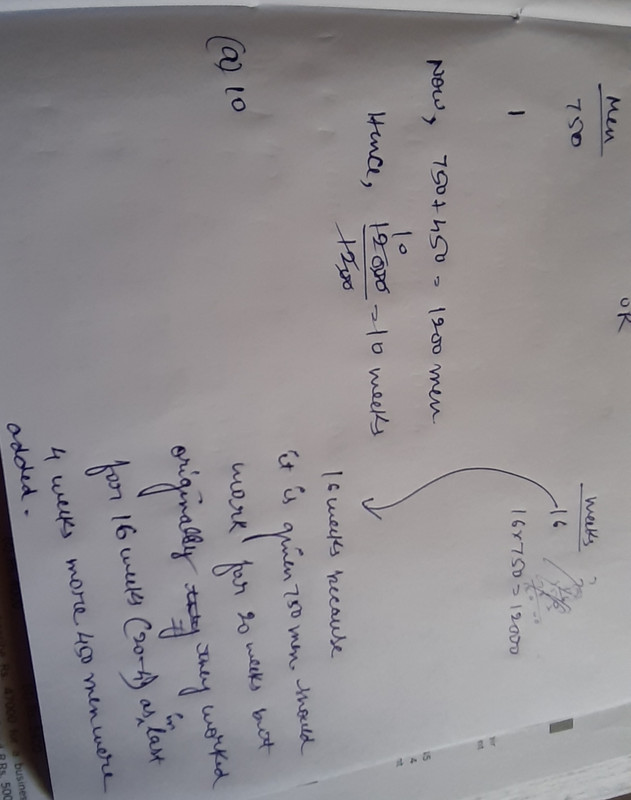 OR
Men
weeks
750
16
1
16x750 = 12000
Now, 750 + 450 = 1200 men
Hence, 12000/1200 = 10 weeks
10
(a) 10
16 weeks because
it is given 750 men should
work for 20 weeks but
originally they worked
for 16 weeks (20-4) as in last
4 weeks more 450 men were
added.